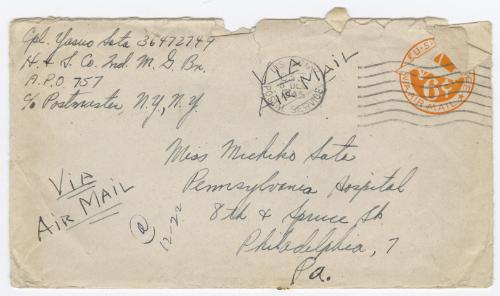 Cpl. Yasuo Sata 36472749
H. & S. Co. 2nd. M. G. Bn.
A.P.O. 757
c/o Postmaster, N.Y., N.Y.
VIA
AIR MAIL
POSTAL SERVICE
1945
AIR MAIL
6¢
Miss Michiko Sata
Pennsylvania Hospital
8th & Spruce St.
Philadelphia, 7
Pa.
VIA
AIR MAIL
12-22